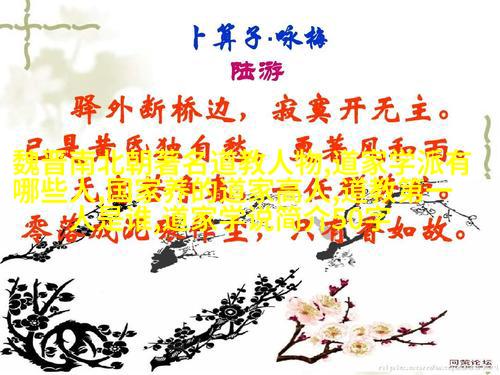 卜算子·咏梅
陆游
驿外断桥边，寂寞开无主。
已是黄昏独自愁，更著风和雨。
魏晋南北朝著名道教人物,道家学派有
哪些人,国家养的道家高人,道教第一
人是谁,道家学说简介50字
零落成泥碾作尘，只有香如故。